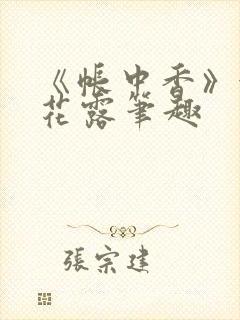 《帳中香》
花露筆趣
張宗建